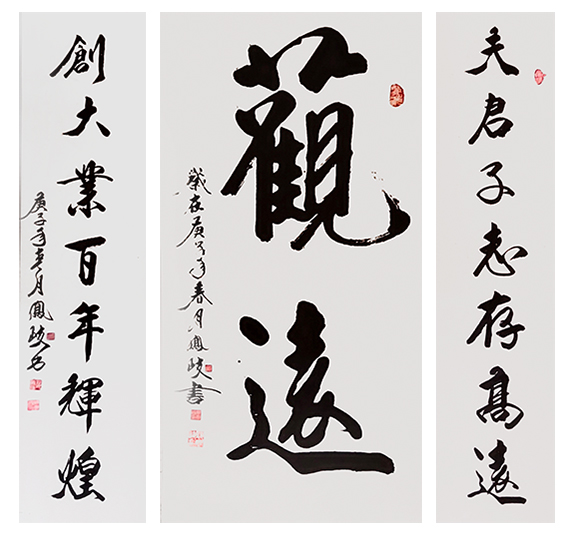 夫君子志存高遠
觀遠
歲在庚子年春月鳳岐書
創大業百年輝煌
庚子年春月鳳岐书